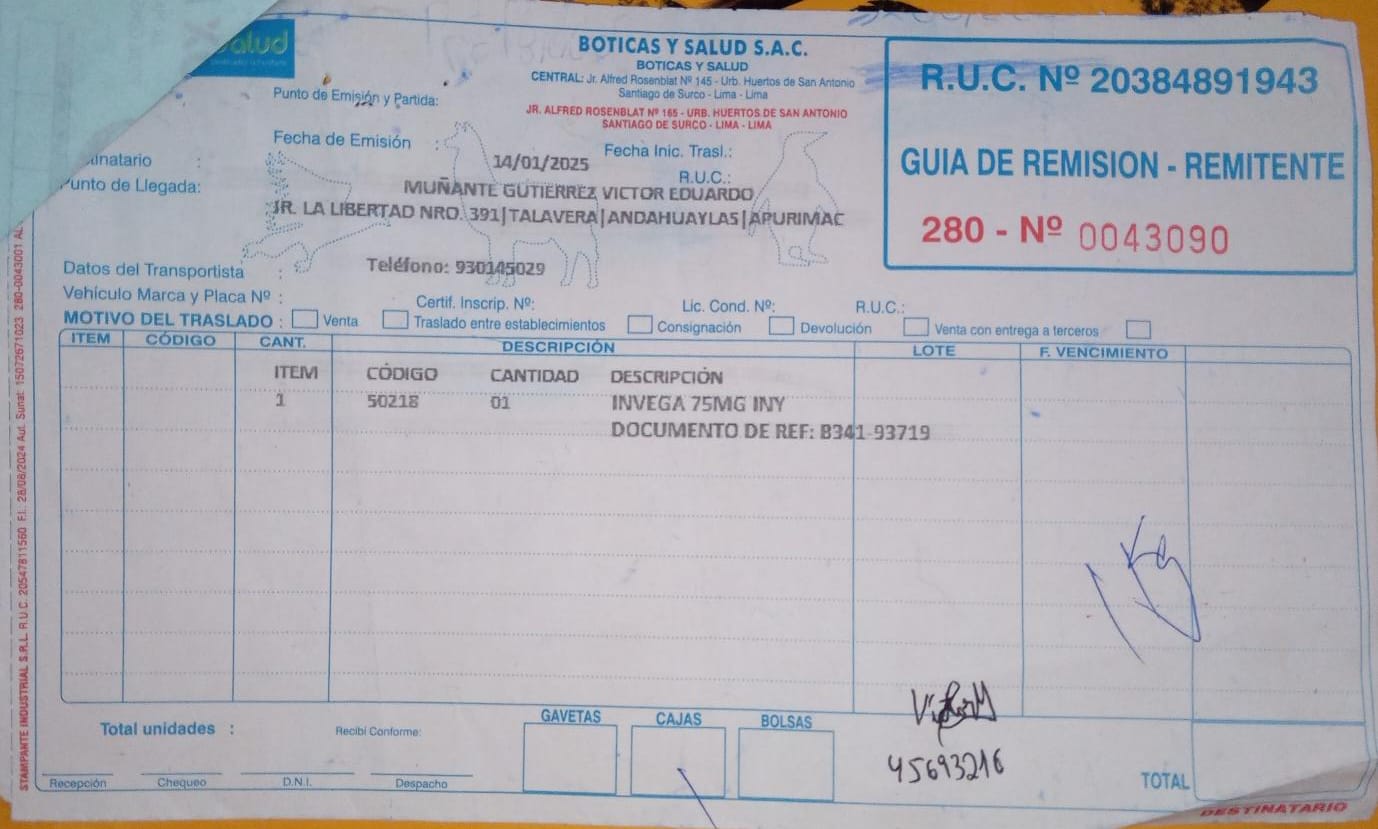 alud
BOTICAS Y SALUD S.A.C.
BOTICAS Y SALUD
CENTRAL: Jr. Alfred Rosenblat Nº 145 - Urb. Huertos de San Antonio
Santiago de Surco - Lima - Lima
JR. ALFRED ROSENBLAT Nº 165 - URB. HUERTOS DE SAN ANTONIO
SANTIAGO DE SURCO - LIMA - LIMA
R.U.C. Nº 20384891943
GUIA DE REMISION - REMITENTE
280 - Nº 0043090
Punto de Emisión y Partida:
Fecha de Emisión : 14/01/2025 Fecha Inic. Trasl.:
inatario : R.U.C.:
MUÑANTE GUTIERREZ VICTOR EDUARDO
unto de Llegada: JR. LA LIBERTAD NRO. 391|TALAVERA|ANDAHUAYLAS|APURIMAC
Datos del Transportista : Teléfono: 930145029
Vehículo Marca y Placa Nº : Certif. Inscrip. Nº: Lic. Cond. Nº: R.U.C.:
MOTIVO DEL TRASLADO : Venta Traslado entre establecimientos Consignación Devolución Venta con entrega a terceros
ITEM CÓDIGO CANT. DESCRIPCIÓN LOTE F. VENCIMIENTO
ITEM CÓDIGO CANTIDAD DESCRIPCIÓN
1 50218 01 INVEGA 75MG INY
DOCUMENTO DE REF: B341-93719
Total unidades : Recibí Conforme: GAVETAS CAJAS BOLSAS
45693216
TOTAL
Recepción Chequeo D.N.I. Despacho
DESTINATARIO
STAMPANTE INDUSTRIAL S.R.L. R.U.C. 20547811560 F.I. 28/08/2024 Aut. Sunat: 15072671023 280-0043001 AL